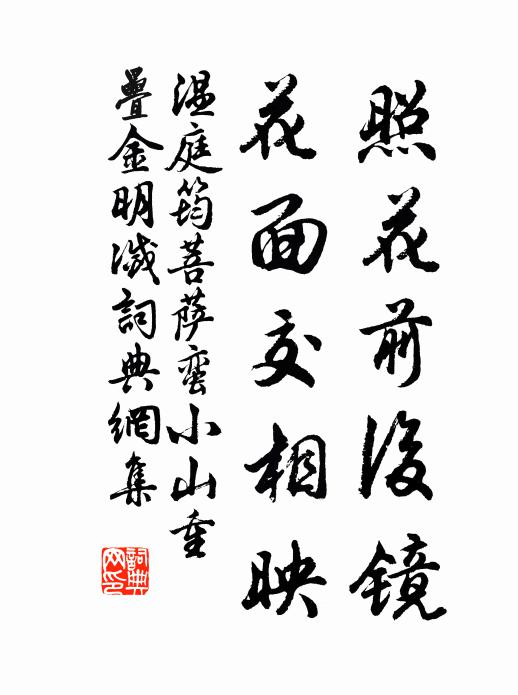 照花前後镜
花面交相映
温庭筠菩萨蛮小山重
疊金明滅詞典網集
詞典网印